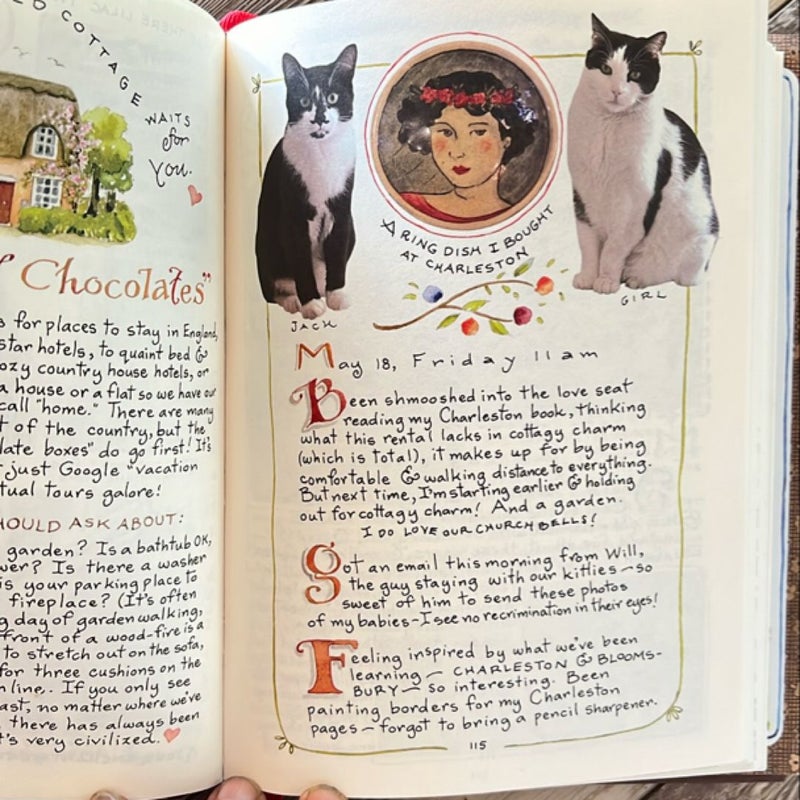 D COTTAGE
WAITS
for
You.
Chocolates"
s for places to stay in England,
star hotels, to quaint bed &
ozy country house hotels, or
a house or a flat so we have our
call "home." There are many
t of the country, but the
late boxes" do go first! It's
just Google "vacation
tual tours galore!
HOULD ASK ABOUT:
garden? Is a bathtub OK,
wer? Is there a washer
is your parking place to
fireplace? (It's often
g day of garden walking,
front of a wood-fire is a
to stretch out on the sofa,
for three cushions on the
n line. If you only see
ast, no matter where we've
there has always been
t's very civilized.
A RING DISH I BOUGHT
AT CHARLESTON
JACK
GIRL
May 18, Friday 11 am
Been shmooshed into the love seat
reading my Charleston book, thinking
what this rental lacks in cottagy charm
(which is total), it makes up for by being
comfortable & walking distance to everything.
But next time, I'm starting earlier & holding
out for cottagy charm! And a garden.
I DO LOVE OUR CHURCH BELLS!
Got an email this morning from Will,
the guy staying with our kitties — so
sweet of him to send these photos
of my babies – I see no recrimination in their eyes!
Feeling inspired by what we've been
learning — CHARLESTON & BLOOMS-
BURY — so interesting. Been
painting borders for my Charleston
pages — forgot to bring a pencil sharpener.
115